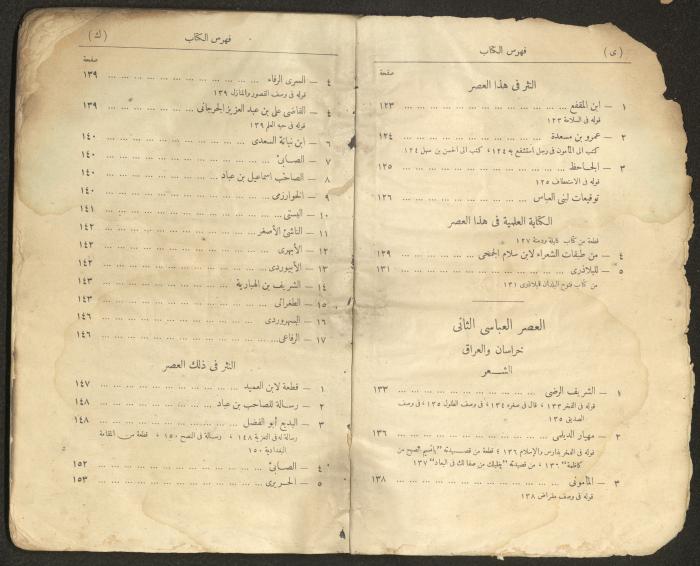 (ى)
فهرس الكتاب
النثر فى هذا العصر
صفحة
١ — ابن المقفع ... ١٢٣
قوله فى السلامة ١٢٣
٢ — عمرو بن مسعدة ... ١٢٤
كتب الى المأمون فى رجل استشفع به ١٢٤، كتب الى الحسن بن سهل ١٢٤
٣ — الجاحظ ... ١٢٥
قوله فى الاستعطاف ١٢٥
توقيعات لبنى العباس ... ١٢٦
الكتابة العلمية فى هذا العصر
قطعة من كتاب كليلة ودمنة ١٢٧
٤ — من طبقات الشعراء لابن سلام الجمحى ... ١٢٩
٥ — للبلاذرى ... ١٣١
من كتاب فتوح البلدان للبلاذرى ١٣١
العصر العباسى الثانى
خراسان والعراق
الشعر
١ — الشريف الرضى ... ١٣٣
قوله فى الفخر ١٣٣، قال فى صغره ١٣٤، فى وصف الطلول ١٣٥، فى وصف
الصديق ١٣٥
٢ — مهيار الديلمى ... ١٣٦
قوله فى الفخر بفارس والإسلام ١٣٦، قطعة من قصيدته "يانسيم الصبح من
كاظمة" ١٣٦، من قصيدته
٣ — المأمونى ... ١٣٨
قوله فى وصف مقراض ١٣٨
(ك)
فهرس الكتاب
صفحة
٤ — السرى الرفاء ... ١٣٩
قوله فى وصف القصور والمنازل ١٣٩
القاضى على بن عبد العزيز الجرجانى ... ١٣٩
٦ — ابن نباتة السعدى ... ١٤٠
٧ — الصابئ ... ١٤٠
٨ — الصاحب اسماعيل بن عباد ... ١٤٠
٩ — الخوارزمى ... ١٤٠
١٠ — البستى ... ١٤١
١١ — الناشئ الأصغر ... ١٤٢
١٢ — الأبهرى ... ١٤٢
١٣ — الأبيوردى ... ١٤٢
١٤ — الشريف بن الهبارية ... ١٤٣
١٥ — الطغرائى ... ١٤٣
١٦ — السهروردى ... ١٤٦
١٧ — الرفاعى ... ١٤٦
النثر فى ذلك العصر
١ — قطعة لابن العميد ... ١٤٧
٢ — رسالة للصاحب بن عباد ... ١٤٨
٣ — البديع أبو الفضل ... ١٤٨
رسالة له فى التعزية ١٤٨، رسالة فى النصح ١٥٠، قطعة من المقامة
البغدادية ١٥٠
٤ — الصابئ ... ١٥٢
٥ — الحريرى ... ١٥٣